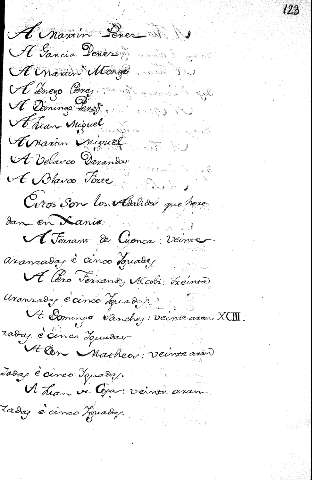 123
A Martin Perez
A Garcia Perez
A Martin Monge
A Diego Perez
A Domingo Perez
A Juan Miguel
A Martin Miguel
A Velasco
A Blasco
Estos son los Adalides que here
dan en
A Ferrant de Cuenca: veinte
aranzadas è cinco Yugadas
A Pero Ferrandez treinta
aranzadas è cinco Yugadas
A Domingo Sanchez: veinte aran XCIII.
zadas è cinco Yugadas
A Don Matheos: veinte aran
zadas è cinco Yugadas.
A Juan de veinte aran
zadas è cinco Yugadas.